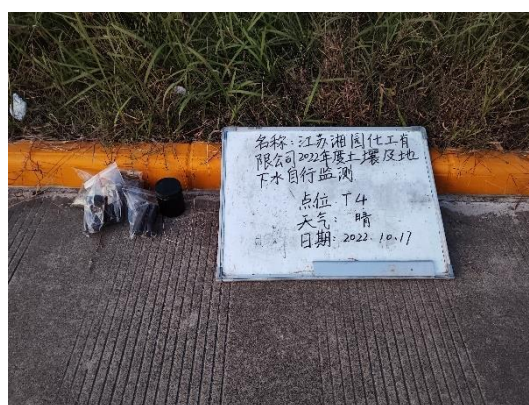 名称:江苏湘园化工有
限公司2022年度土壤及地
下水自行监测
点位 T4
天气: 晴
日期: 2022.10.17